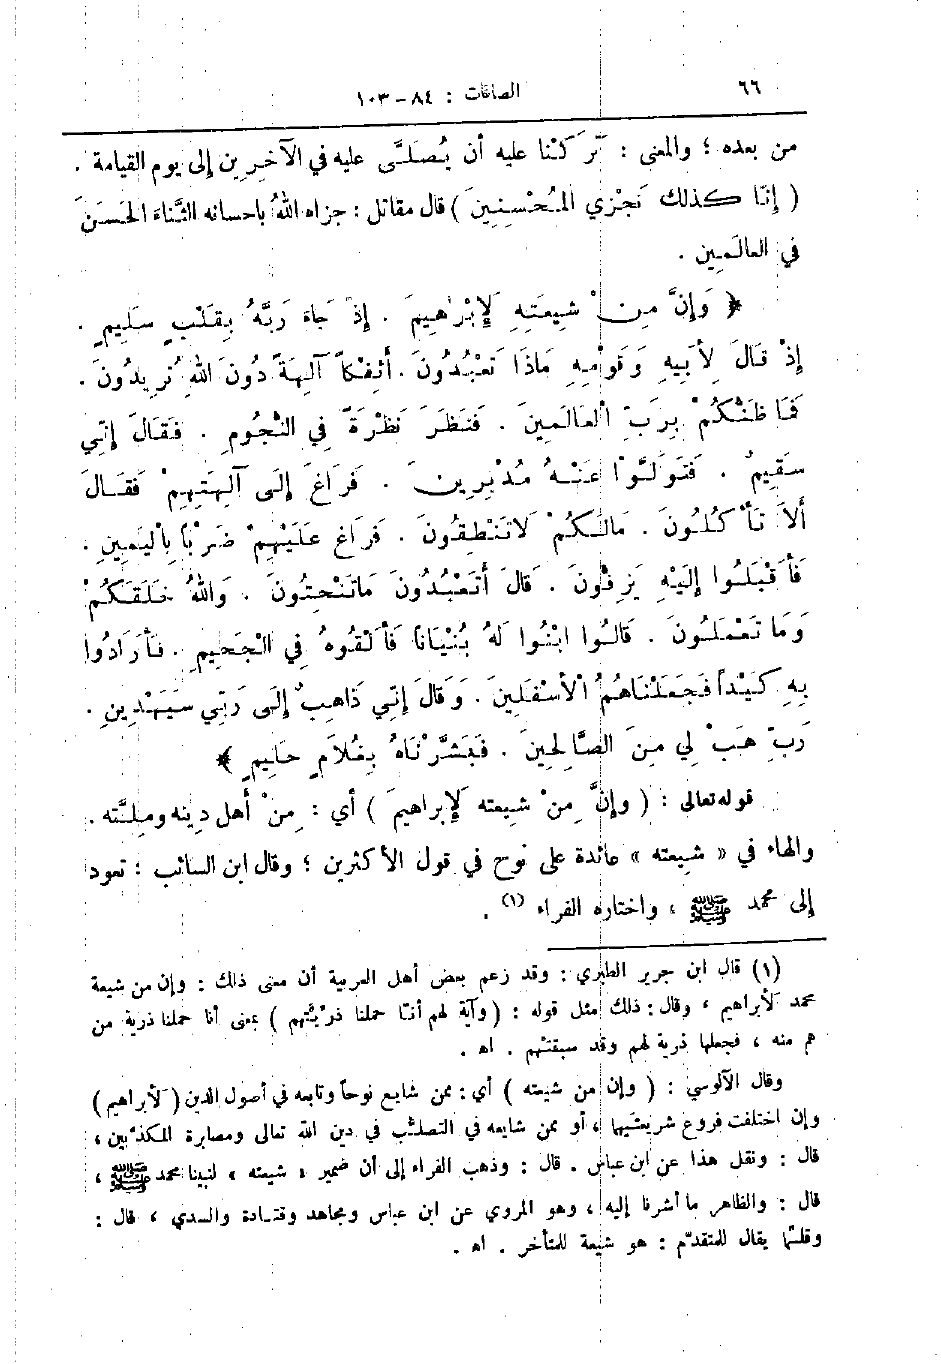 ٦٦
الصافات : ٨٤ – ١٠٣
من بعده ؛ والمعنى : تَرَكْنا عليه أن يُصلَّى عليه في الآخِرِين إلى يوم القيامة .
( إنّا كذلك نَجْزي المُحْسنِينَ ) قال مقاتل : جزاه اللهُ بإحسانه الثَّناءَ الحَسَنَ
في العالَمِين .
﴿ وَإِنَّ مِنْ شِيعَتِهِ لَإِبْرٰهِيمَ . إِذْ جَاءَ رَبَّهُ بِقَلْبٍ سَلِيمٍ .
إِذْ قَالَ لِأَبِيهِ وَقَوْمِهِ مَاذَا تَعْبُدُونَ . أَئِفْكاً آلِهَةً دُونَ اللهِ تُرِيدُونَ .
فَمَا ظَنُّكُمْ بِرَبِّ الْعَالَمِينَ . فَنَظَرَ نَظْرَةً فِي النُّجُومِ . فَقَالَ إِنِّي
سَقِيمٌ . فَتَوَلَّوْا عَنْهُ مُدْبِرِينَ . فَرَاغَ إِلَى آلِهَتِهِمْ فَقَالَ
أَلاَ تَأْكُلُونَ . مَالَكُمْ لاَتَنْطِقُونَ . فَرَاغَ عَلَيْهِمْ ضَرْباً بِالْيَمِينِ .
فَأَقْبَلُوا إِلَيْهِ يَزِفُّونَ . قَالَ أَتَعْبُدُونَ مَاتَنْحِتُونَ . وَاللهُ خَلَقَكُمْ
وَمَا تَعْمَلُونَ . قَالُوا ابْنُوا لَهُ بُنْيَاناً فَأَلْقُوهُ فِي الْجَحِيمِ . فَأَرَادُوا
بِهِ كَيْداً فَجَعَلْنَاهُمُ الْأَسْفَلِينَ . وَقَالَ إِنِّي ذَاهِبٌ إِلَى رَبِّي سَيَهْدِينِ .
رَبِّ هَبْ لِي مِنَ الصَّالِحِينَ . فَبَشَّرْنَاهُ بِغُلَامٍ حَلِيمٍ ﴾
قوله تعالى : ( وإنَّ مِنْ شِيعته لَإِبراهيمَ ) أي : مِنْ أهل دِينه ومِلَّته .
والهاء في « شِيعته » عائدة على نوح في قول الأكثرين ؛ وقال ابن السائب : تعود
إلى محمد ﷺ ، واختاره الفراء (١) .
(١) قال ابن جرير الطبري : وقد زعم بعض أهل العربية أن معنى ذلك : وإن من شيعة
محمد لَأبراهيم ، وقال : ذلك مثل قوله : ( وآية لهم أنّا حملنا ذريَّتهم ) بمعنى أنا حملنا ذرية من
هم منه ، فجعلها ذرية لهم وقد سبقتهم . اه .
وقال الآلوسي : ( وإن من شيعته ) أي : ممن شايع نوحاً وتابعه في أصول الدين ( لَأبراهيم )
وإن اختلفت فروع شريعتيهما ، أو ممن شايعه في التصلُّب في دين الله تعالى ومصابرة المكذبين ،
قال : ونقل هذا عن ابن عباس . قال : وذهب الفراء إلى أن ضمير « شيعته » لنبينا محمد ﷺ ،
قال : والظاهر ما أشرنا إليه ، وهو المروي عن ابن عباس ومجاهد وقتادة والسدي ، قال :
وقلَّما يقال للمتقدِّم : هو شيعة للمتأخر . اه .